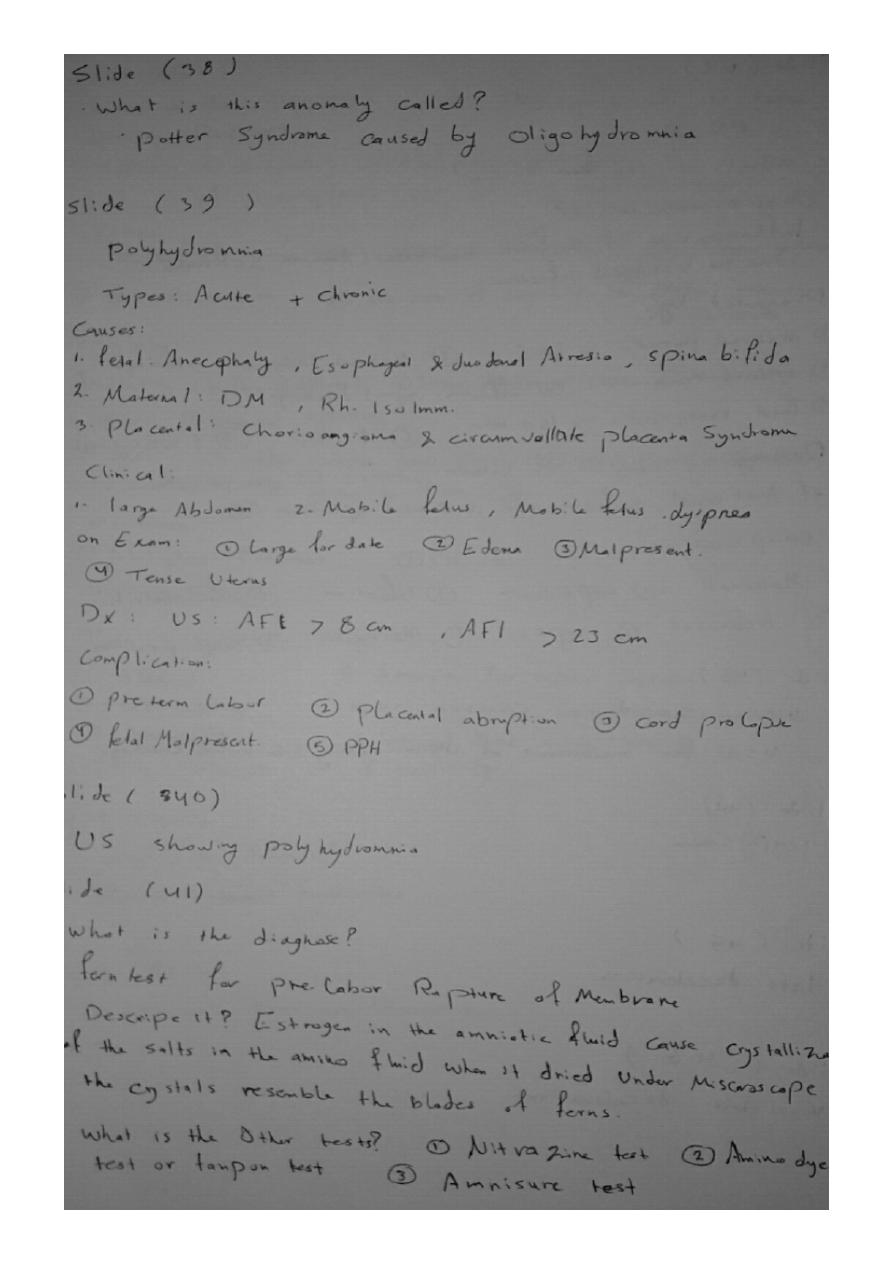 Slide (38)
. What is this anomaly called?
. potter Syndrome caused by Oligohydromnia
slide (39)
polyhydromnia
Types: Acute + chronic
Causes:
1. fetal. Anecephaly, Esophageal & duodenal Atresia, spina bifida
2. Maternal: DM, Rh. Iso Imm.
3. Placental: Chorioangioma & circumvallate placenta Syndrome
Clinical:
1. large Abdomen 2. Mobile fetus, Mobile fetus. dyspnea
on Exam: ① Large for date ② Edema ③ Malpresent.
④ Tense Uterus
Dx: US: AFI > 8 cm, AFI > 23 cm
Complication:
① preterm Labour ② Placental abruption ③ cord prolapse
④ fetal Malpresent. ⑤ PPH
lide (340)
US showing polyhydromnia
ide (41)
What is the diagnose?
fern test for pre Labor Rupture of Membrane
Descripe it? Estrogen in the amniotic fluid cause crystalliza
of the salts in the amino fluid when it dried Under Miscroscope
the crystals resemble the blades of ferns.
What is the Other tests? ① Nitrazine test ② Amino dye
test or tanpon test ③ Amnisure test